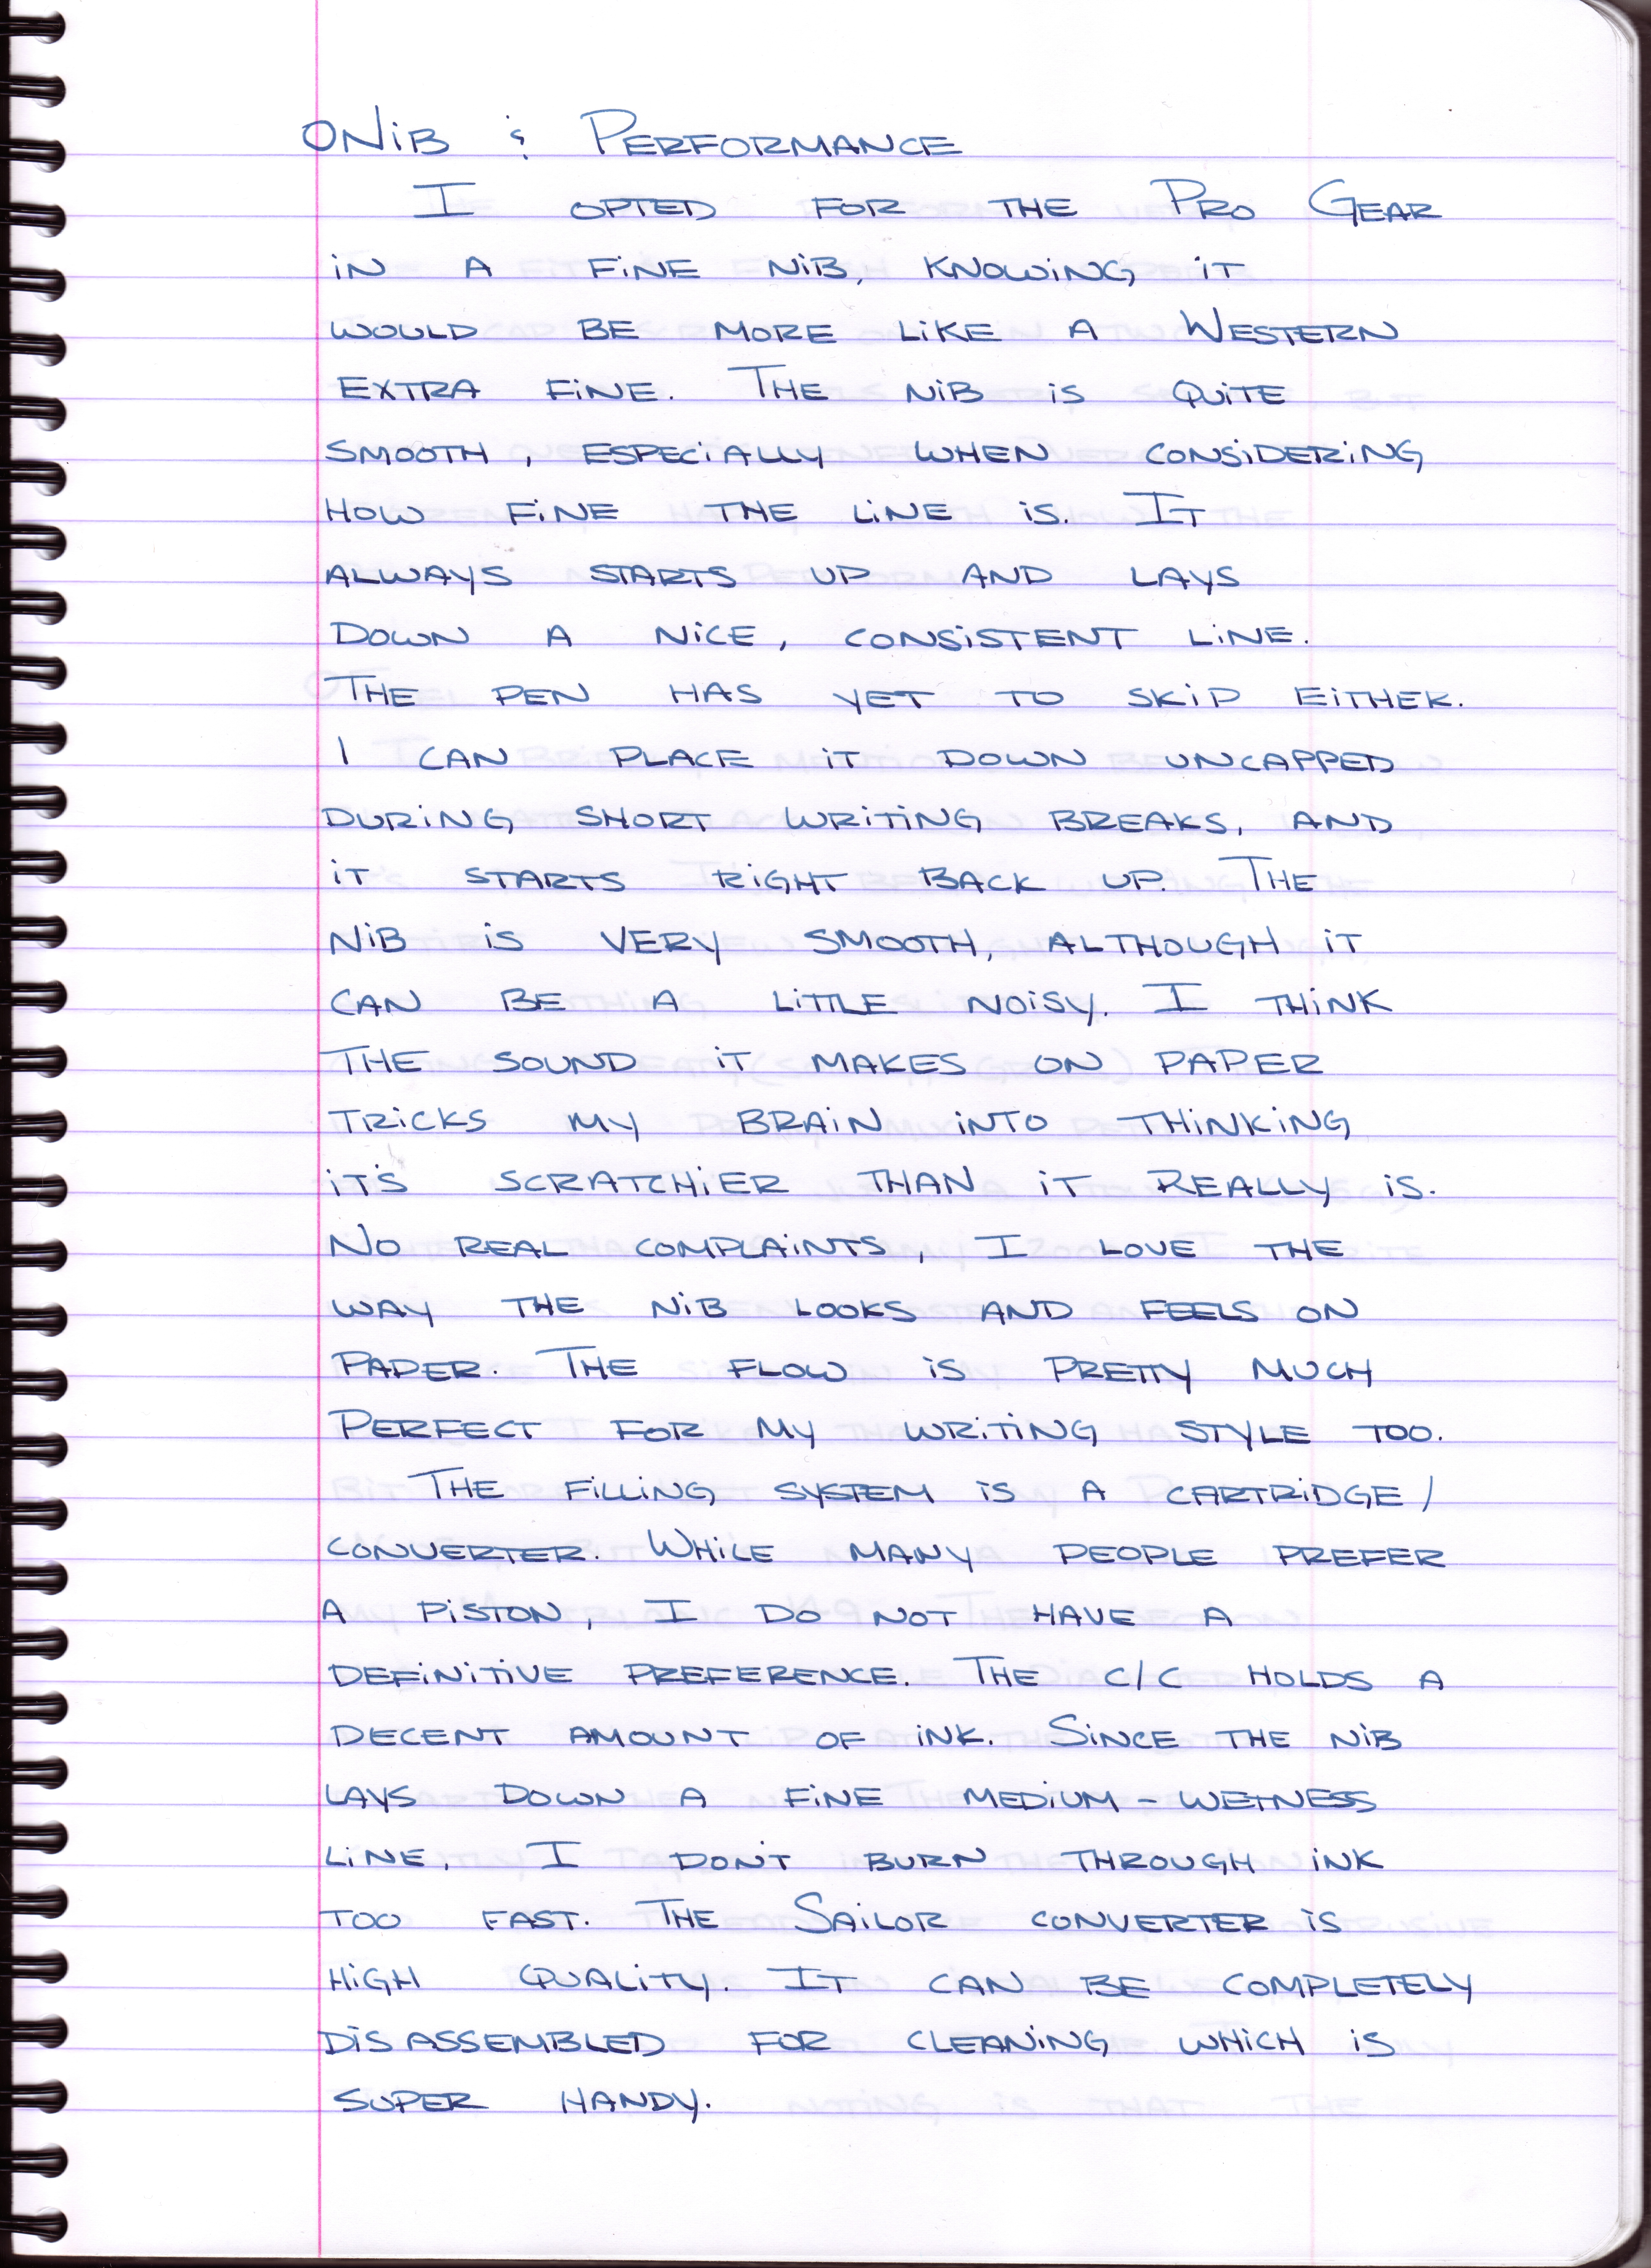 ○ Nib & Performance
I opted for the Pro Gear
in a fine nib, knowing it
would be more like a Western
extra fine. The nib is quite
smooth, especially when considering
how fine the line is. It
always starts up and lays
down a nice, consistent line.
The pen has yet to skip either.
I can place it down uncapped
during short writing breaks, and
it starts right back up. The
nib is very smooth, although it
can be a little noisy. I think
the sound it makes on paper
tricks my brain into thinking
it's scratchier than it really is.
No real complaints, I love the
way the nib looks and feels on
paper. The flow is pretty much
perfect for my writing style too.
The filling system is a cartridge/
converter. While many people prefer
a piston, I do not have a
definitive preference. The c/c holds a
decent amount of ink. Since the nib
lays down a fine medium-wetness
line, I don't burn through ink
too fast. The Sailor converter is
high quality. It can be completely
disassembled for cleaning which is
super handy.